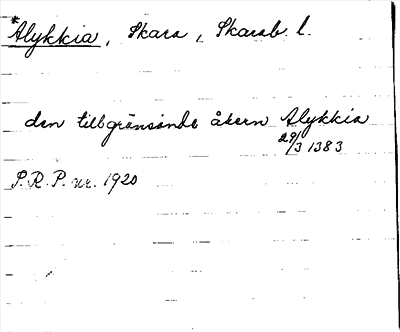 *Alykkia, Skara, Skarab. l.
den tillgränsande åkern Alykkia
29/3 1383
P.R.P. nr. 1920